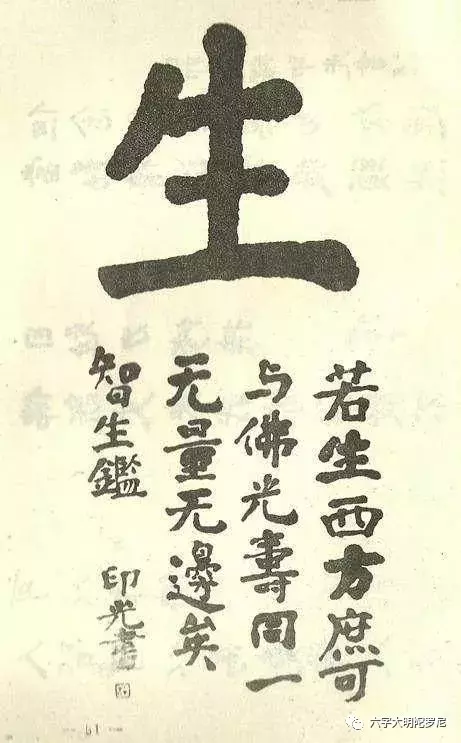 生
若生西方庶可
与佛光壽同一
无量无邊矣
智生鑑
印光書
61
六字大明祀罗尼